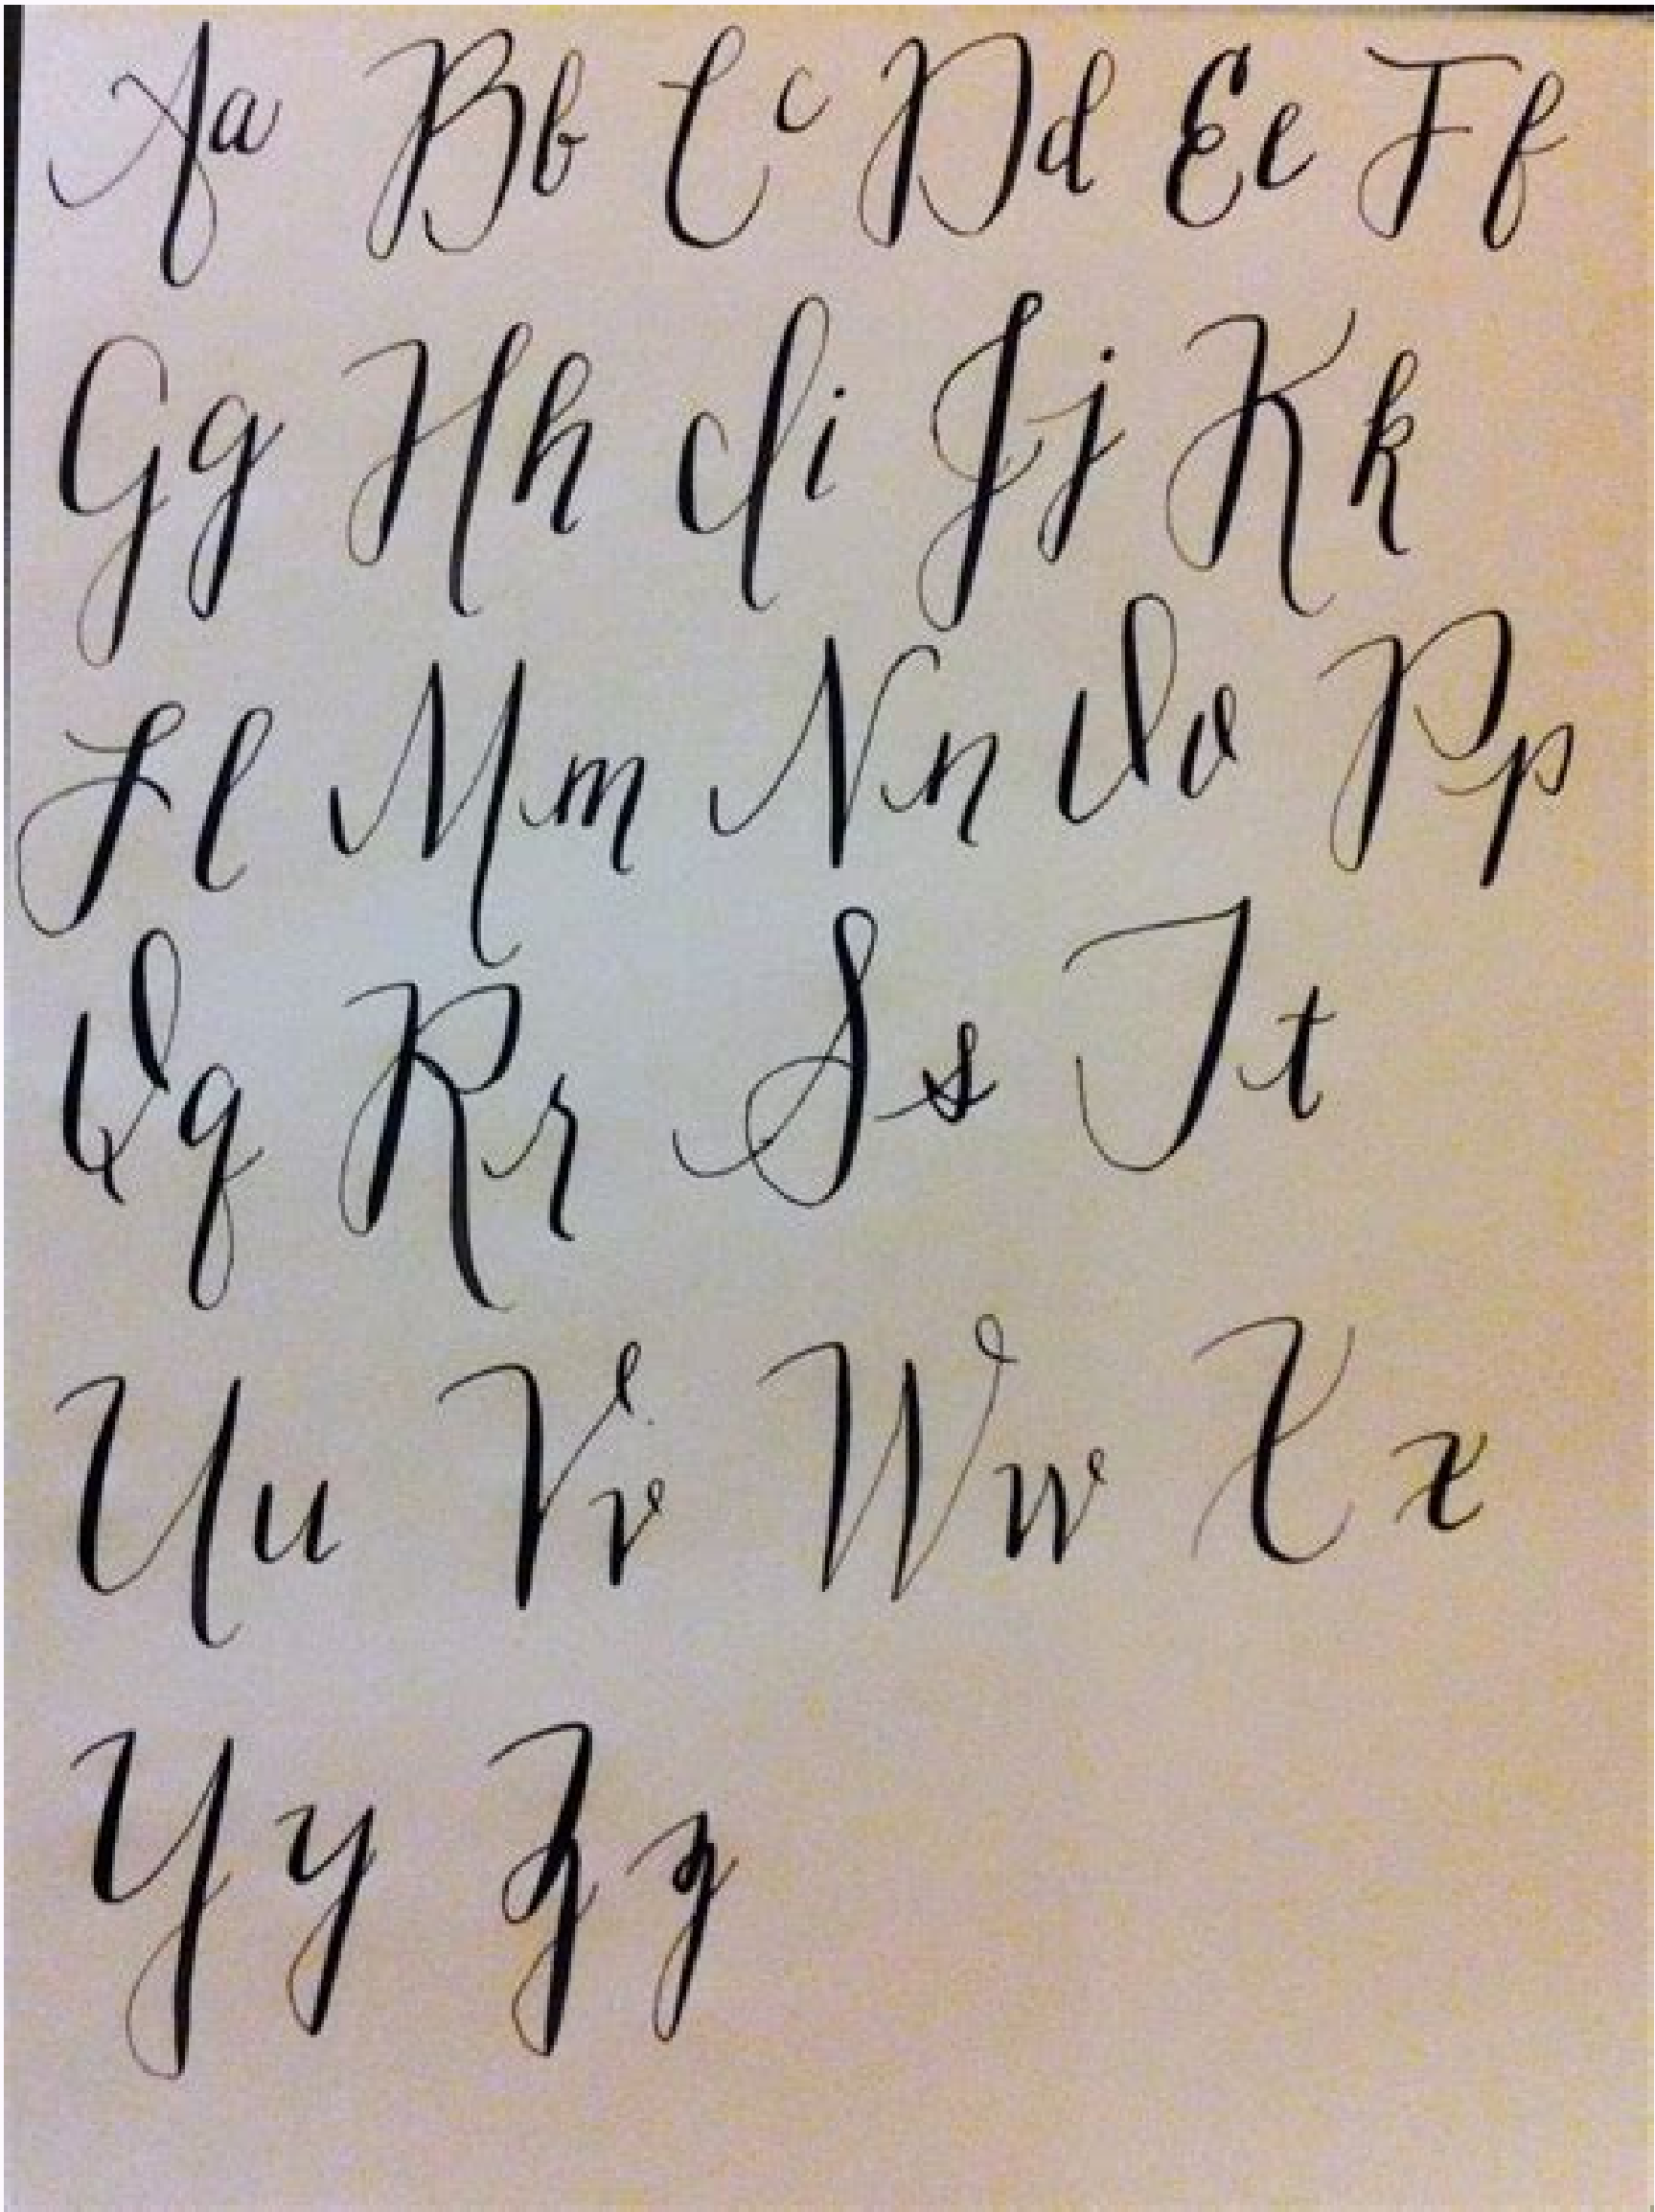 Aa Bb Cc Dd Ee Ff
Gg Hh Ii Jj Kk
Ll Mm Nn Oo Pp
Qq Rr Ss Tt
Uu Vv Ww Xx
Yy Zz